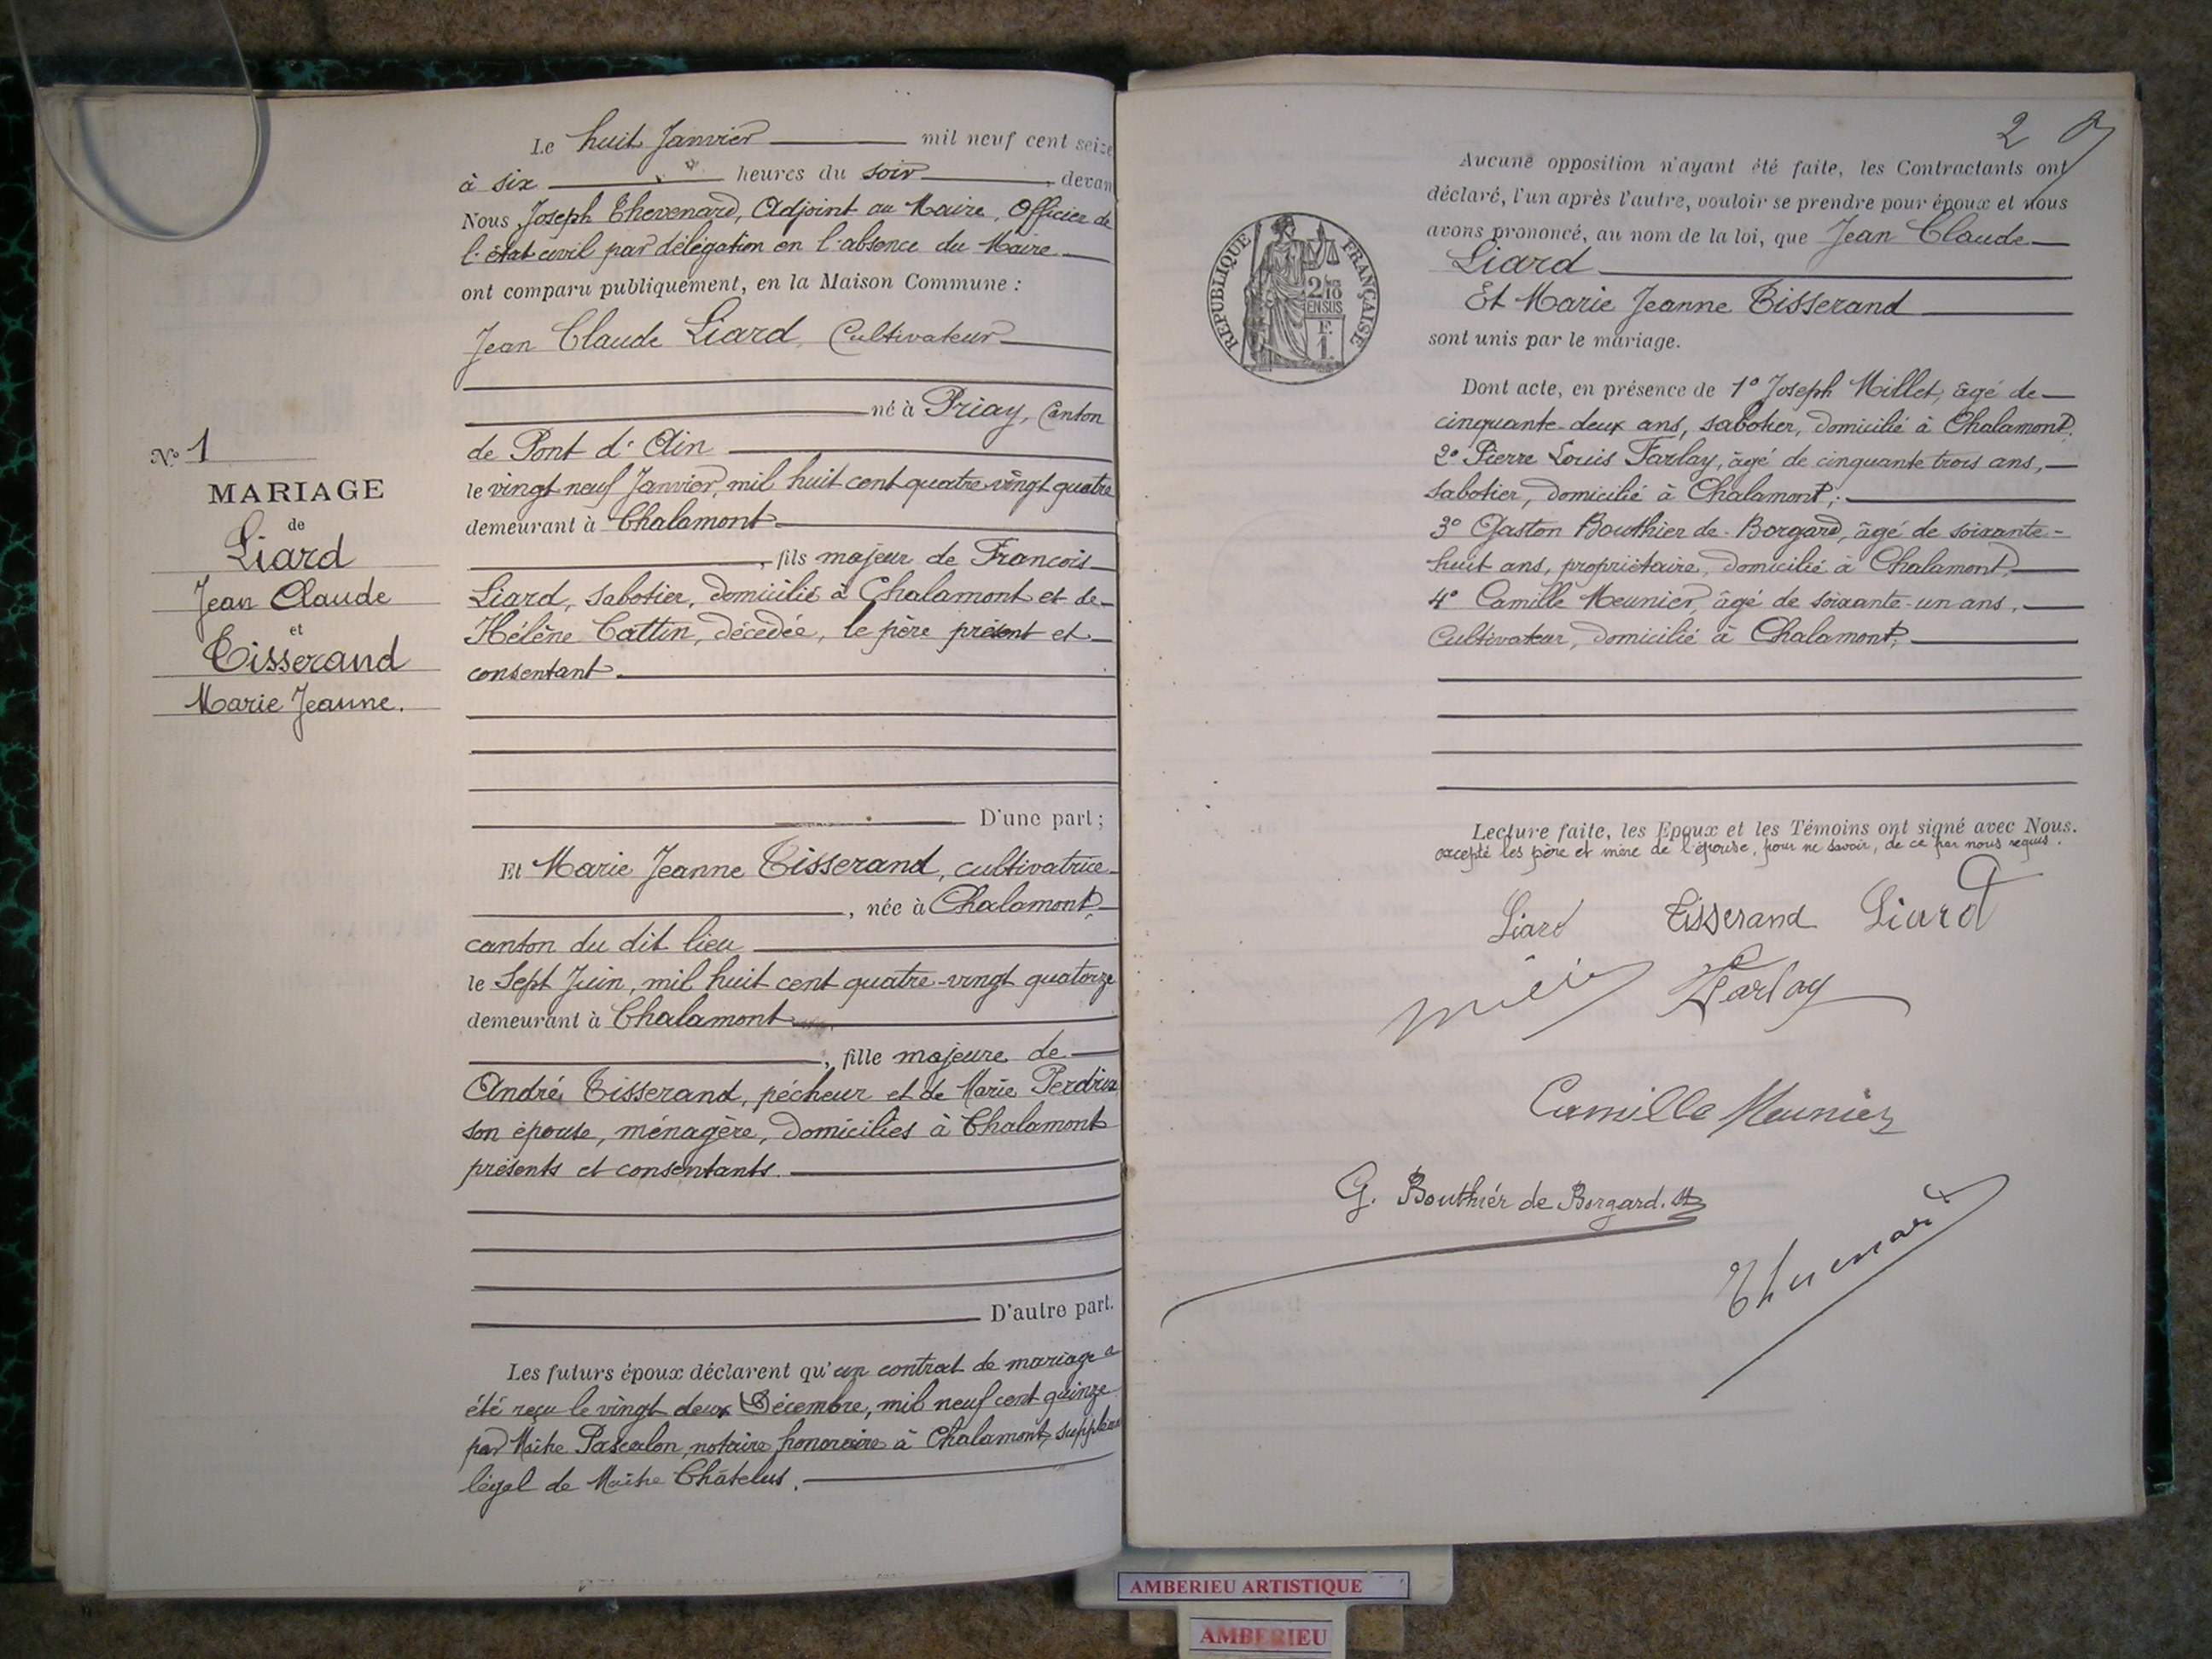 Le huit Janvier mil neuf cent seize
à six heures du soir, devan
Nous Joseph Thevenard, Adjoint au Maire, Officier de
l'état civil par délégation en l'absence du Maire
ont comparu publiquement, en la Maison Commune :
Jean Claude Liard, Cultivateur
né à Priay, Canton
de Pont d'Ain
le vingt neuf Janvier, mil huit cent quatre vingt quatre
demeurant à Chalamont
, fils majeur de François
Liard, sabotier, domicilié à Chalamont et de
Hélène Cattin, décedée, le père présent et
consentant.
D'une part ;
Et Marie Jeanne Tisserand, cultivatrice
, née à Chalamont,
canton du dit lieu
le Sept Juin, mil huit cent quatre-vingt quatorze
demeurant à Chalamont
, fille majeure de
André Tisserand, pécheur et de Marie Perdrix
son épouse, ménagère, domiciliés à Chalamont
présents et consentants.
D'autre part.
Les futurs époux déclarent qu'un contrat de mariage a
été reçu le vingt deux Décembre, mil neuf cent quinze
par Maître Pascalon, notaire honoraire à Chalamont, suppléan
légal de Maître Châtelus.
N° 1
MARIAGE
de
Liard
Jean Claude
et
Tisserand
Marie Jeanne.
2
Aucune opposition n'ayant été faite, les Contractants ont
déclaré, l'un après l'autre, vouloir se prendre pour époux et nous
avons prononcé, au nom de la loi, que Jean Claude
Liard
Et Marie Jeanne Tisserand
sont unis par le mariage.
Dont acte, en présence de 1° Joseph Millet, âgé de
cinquante-deux ans, sabotier, domicilié à Chalamont;
2° Pierre Louis Farlay, âgé de cinquante trois ans,
sabotier, domicilié à Chalamont;
3° Gaston Bouthier de Borgard, âgé de soixante-
huit ans, propriétaire, domicilié à Chalamont,
4° Camille Meunier, âgé de soixante-un ans,
Cultivateur, domicilié à Chalamont;
Lecture faite, les Epoux et les Témoins ont signé avec Nous.
excepté les père et mère de l'épouse, pour ne savoir, de ce par nous requis.
Liard Tisserand Liard
Farlay
Camille Meunier
G. Bouthier de Borgard.
Thevenard
REPUBLIQUE FRANÇAISE
2/10
EN SUS
F.
1.
AMBERIEU ARTISTIQUE
AMBERIEU